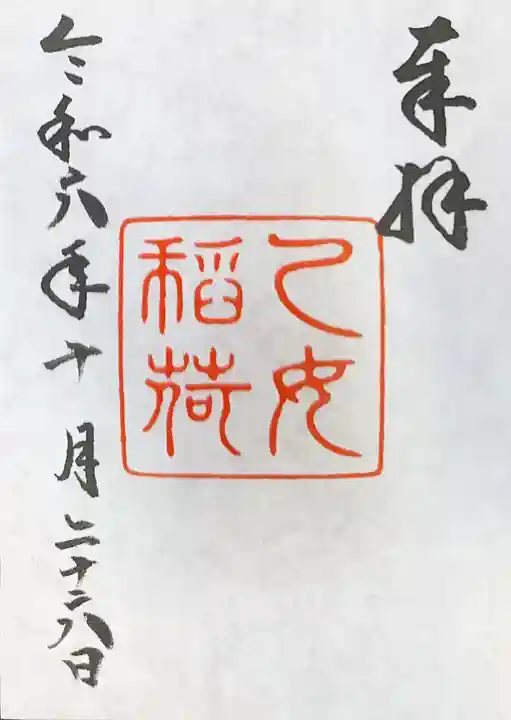 奉拝
乙女
稲荷
令和六年十月二十八日